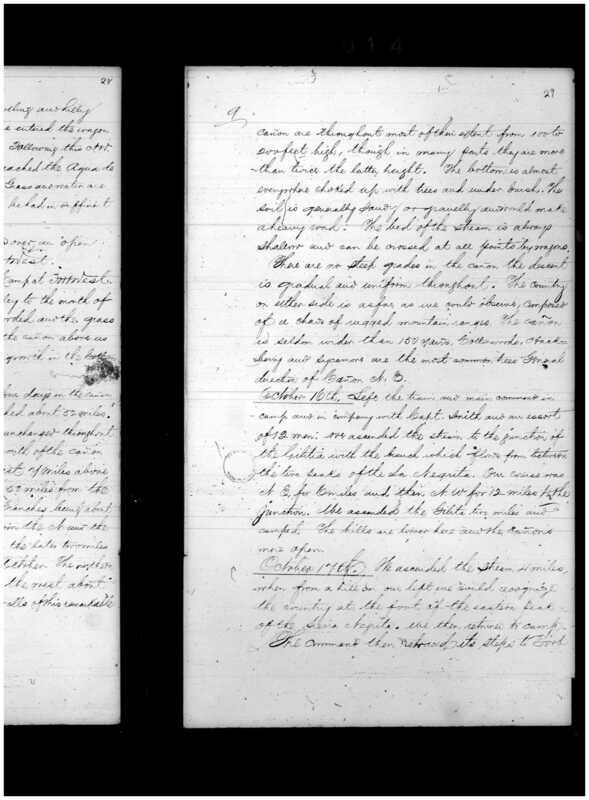 014
28
veling and hilly
e entered the wagon
Following this N.W.
eached the Agua de
Grass and water are
he had in sufficient
over an open
Camp at Fort West
ley to the mouth of
orded and the grass
the cañon above us
growth in the
four days in the cañon
ked about 52 miles.
unchanged throughout
mouth of the cañon
West 4 miles above
52 miles from the
branches being about
from the N and the
the latter two miles
the west about
walls of this remarkable
29
9
cañon are throughout most of their extent from 100 to
200 feet high, though in many parts they are more
than twice the latter height. The bottom is almost
everywhere choked up with trees and under brush. The
soil is generally sandy or gravelly and would make
a heavy road. The bed of the stream is always
shallow and can be crossed at all points by wagons.
There are no steep grades in the cañon the descent
is gradual and uniform throughout. The country
on either side is as far as we could observe, composed
of a chaos of rugged mountain ranges. The cañon
is seldom wider than 150 yards, Cottonwoods, Hack
berry and Sycamore are the most common trees General
direction of Cañon N. E.
October 16th. Left the train and main command in
camp and in company with Capt. Smith and an escort
of 12 men: we ascended the stream to the junction of
the Gilita with the branch which flows from between
the two peaks of the La Negrita. Our course was
N. E. for 6 miles and then N W for 12 miles to the
junction. We ascended the Gilita two miles and
camped. The hills are lower here and the cañon is
more open.
October 17th. We ascended the stream 4 miles,
when from a hill on our left we could recognize
the country at the foot of the eastern peak
of the Sierra Negrita. We then returned to camp.
The command then retraced its steps to Fort